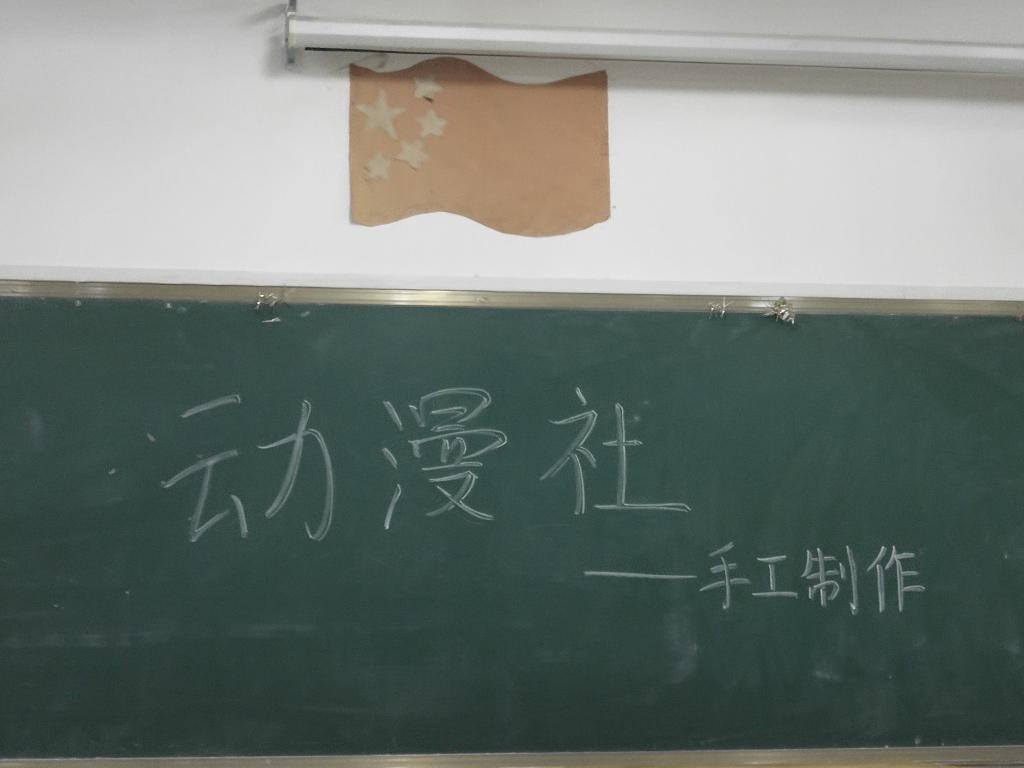 动漫社
——手工制作